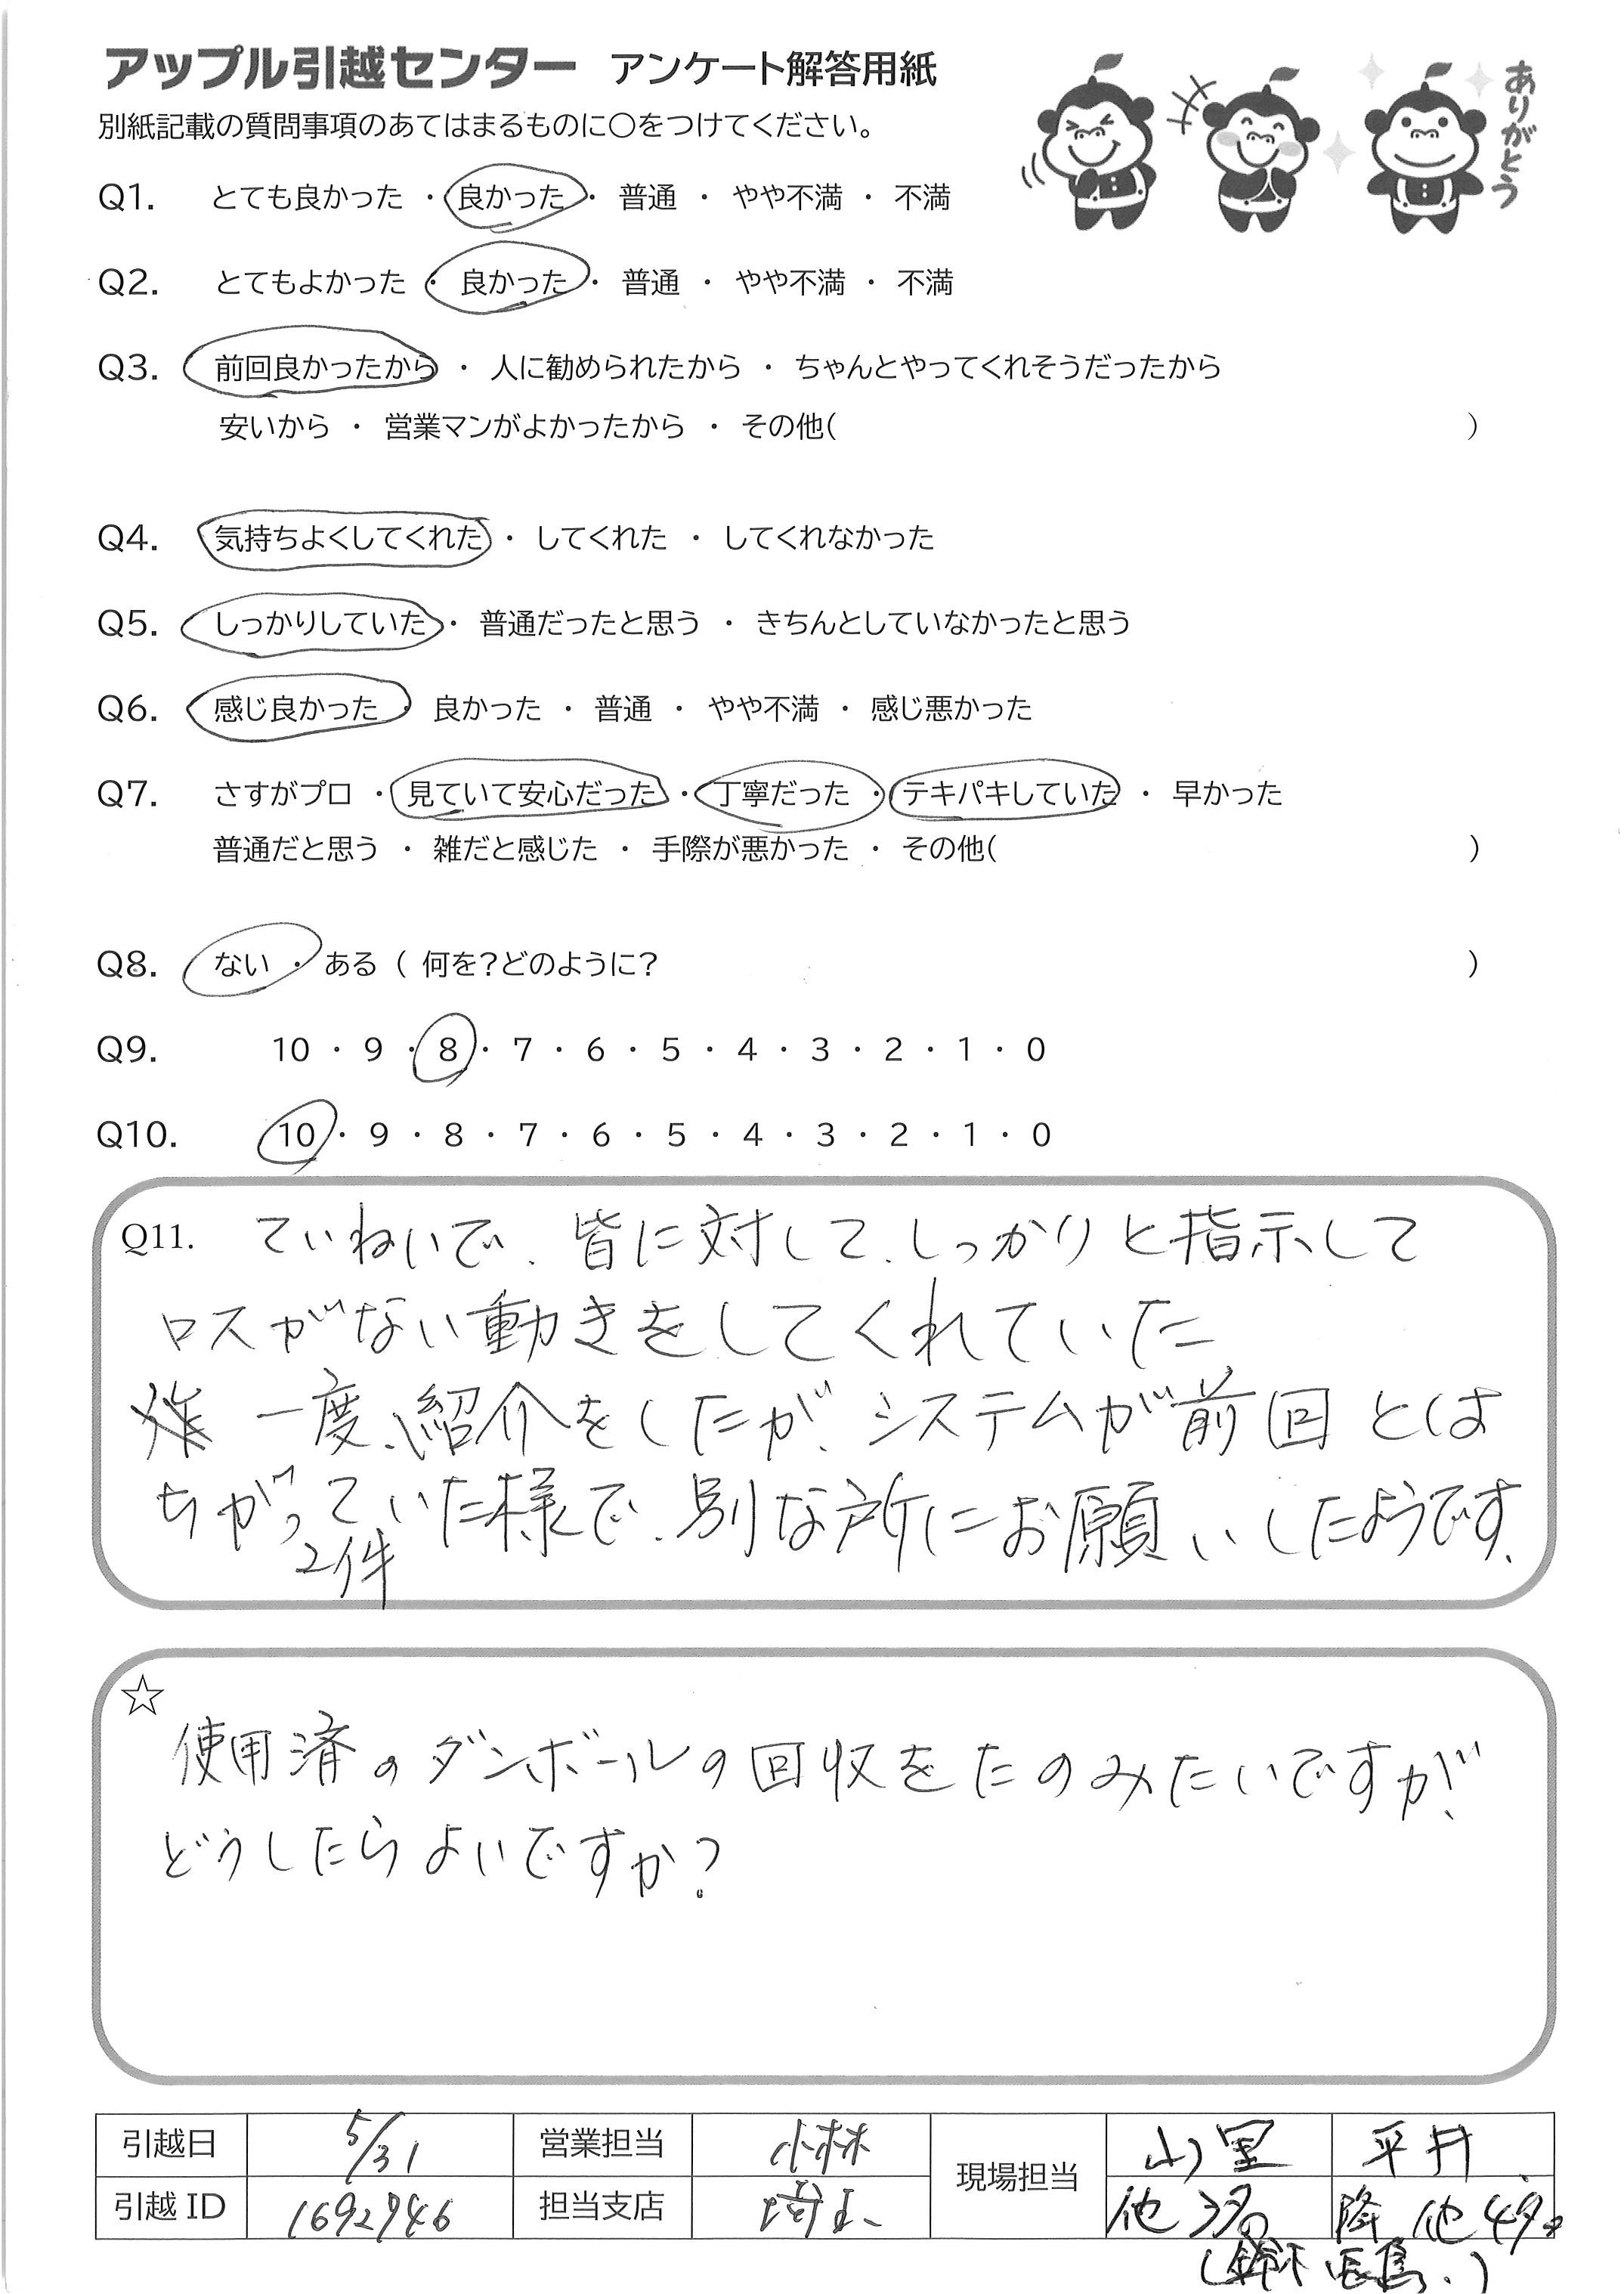 アップル引越センター アンケート解答用紙
別紙記載の質問事項のあてはまるものに〇をつけてください。
ありがとう
Q1. とても良かった ・ 良かった ・ 普通 ・ やや不満 ・ 不満
Q2. とてもよかった ・ 良かった ・ 普通 ・ やや不満 ・ 不満
Q3. 前回良かったから ・ 人に勧められたから ・ ちゃんとやってくれそうだったから
安いから ・ 営業マンがよかったから ・ その他( )
Q4. 気持ちよくしてくれた ・ してくれた ・ してくれなかった
Q5. しっかりしていた ・ 普通だったと思う ・ きちんとしていなかったと思う
Q6. 感じ良かった ・ 良かった ・ 普通 ・ やや不満 ・ 感じ悪かった
Q7. さすがプロ ・ 見ていて安心だった ・ 丁寧だった ・ テキパキしていた ・ 早かった
普通だと思う ・ 雑だと感じた ・ 手際が悪かった ・ その他( )
Q8. ない ・ ある ( 何を?どのように? )
Q9. 10 ・ 9 ・ 8 ・ 7 ・ 6 ・ 5 ・ 4 ・ 3 ・ 2 ・ 1 ・ 0
Q10. 10 ・ 9 ・ 8 ・ 7 ・ 6 ・ 5 ・ 4 ・ 3 ・ 2 ・ 1 ・ 0
Q11. ていねいで、皆に対して、しっかりと指示して
ロスがない動きをしてくれていた
一度、紹介をしたが、システムが前回とは
ちがっていた様で、別な所にお願いしたようです。
2件
☆
使用済のダンボールの回収をたのみたいですが、
どうしたらよいですか?
引越日 5/31 営業担当 小林 現場担当 山里 平井
引越ID 1692746 担当支店 埼玉 他 降 他4名
(鈴木 長島.)